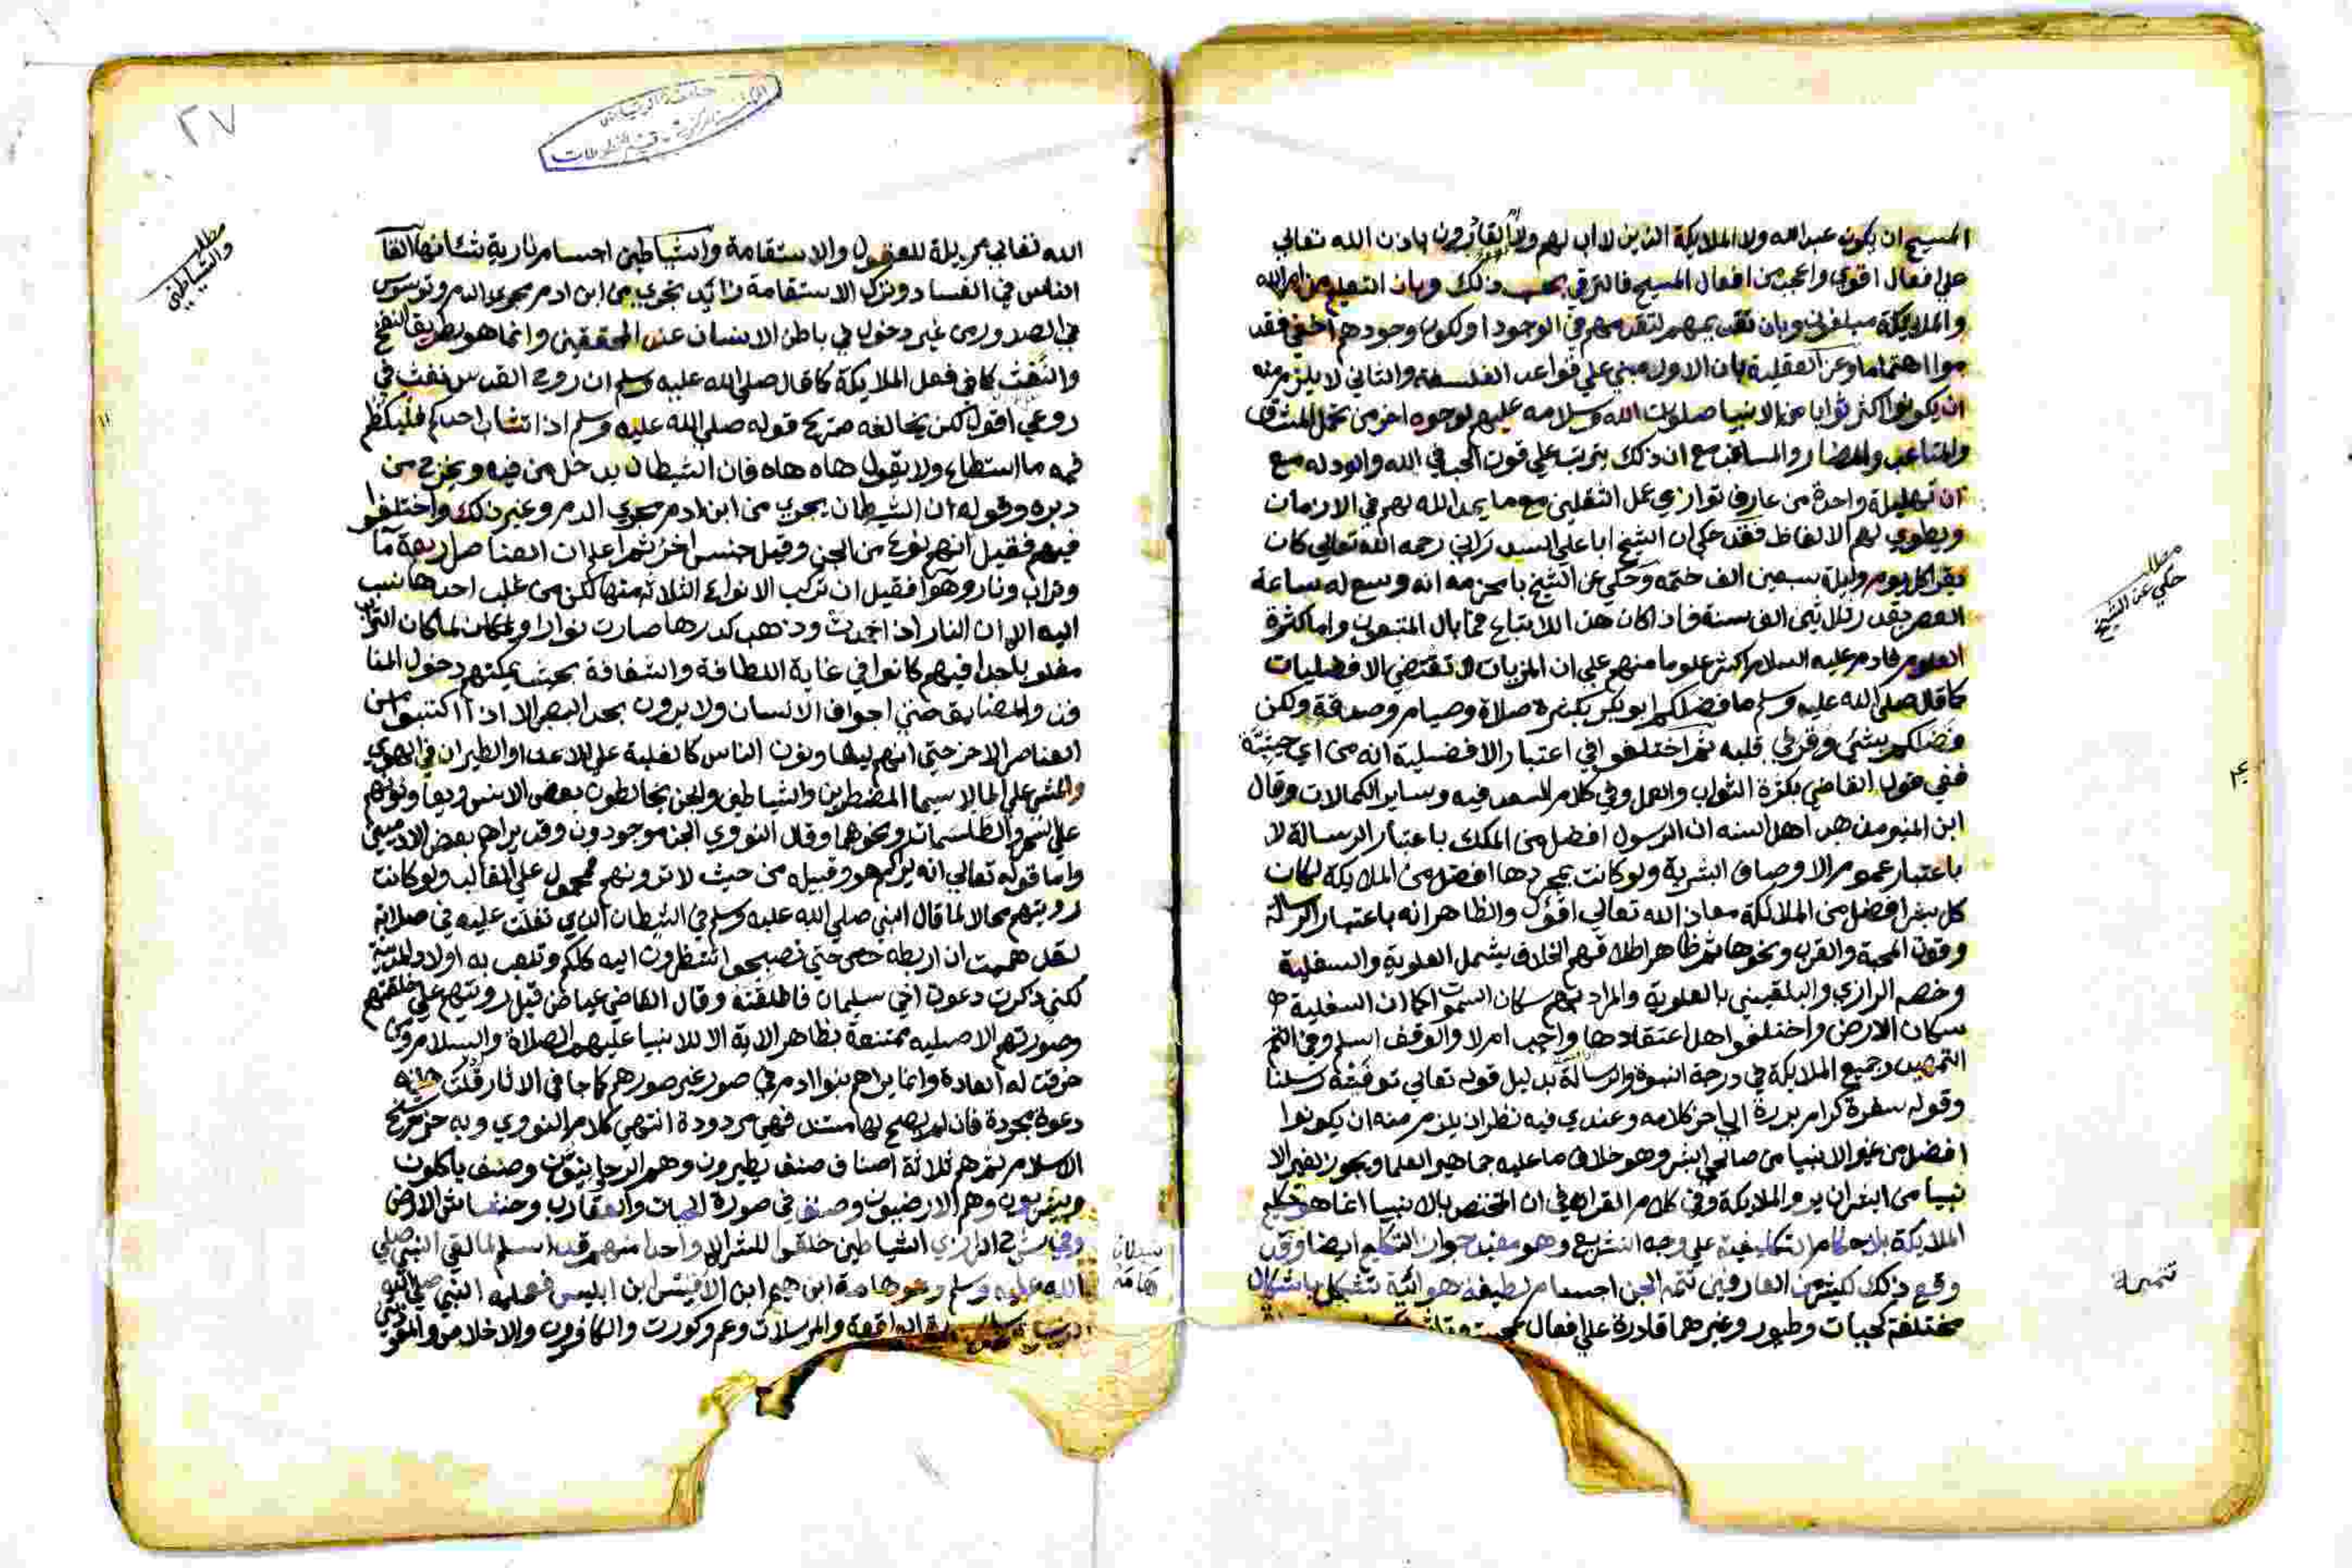 المسيح ان يكون عبدا لله ولا الملايكة الذين لا اب لهم ولا ام القادرون باذن الله تعالي
علي افعال اقوي واعجب من افعال المسيح فالترقي بحسب ذلك وبان التعليم من الله
والملايكة مبلغون وبان تقديمهم لتقدمهم في الوجود او لكون وجودهم اخفي فقد
موا اهتماما وعن العقلية بان الاول مبني علي قواعد الفلسفة والثاني لا يلزم منه
ان يكونوا اكثر ثوابا من الانبيا صلوات الله وسلامه عليهم لوجوه اخر من تحمل المشاق
والمتاعب والمضار والمساعب مع ان ذلك يترتب علي قوت الحب في الله والوله مع
ان تهليلة واحدة من عارف توازي عمل الثقلين مع ما يمد الله لهم في الازمان
ويطوي لهم الالفاظ فقد حكي ان الشيخ ابا علي السيد راني رحمه الله تعالي كان
يقرا كل يوم وليلة سبعين الف ختمه وحكي عن الشيخ بامخرمه انه وسع له ساعة
العصر بقدر الف سنة فاذا كان هذا للاتباع فما بال المتبعون واما كثرة
العلوم فادم عليه السلام اكثر علوما منهم علي ان المزيات لا تقتضي الافضليات
كما قال صلي الله عليه وسلم ما فضلكم ابو بكر بكثرة صلاة وصيام وصدقة ولكن
فضلكم بشيء وقر في قلبه ثم اختلفوا في اعتبار الافضلية انه من اي حيثية
ففي قول القاضي بكثرة الثواب والعمل وفي كلام السعد فيه وساير الكمالات وقال
ابن المنير مذهب اهل السنه ان الرسول افضل من الملك باعتبار الرسالة لا
باعتبار عموم الاوصاف البشرية ولو كانت بمجردها افضل من الملايكة لكان
كل بشر افضل من الملائكة معاذ الله تعالي اقول والظاهر انه باعتبار الرسالة
وقوت المحبة والقرب ونحوها ثم ظاهر اطلاقهم الخلاف يشمل العلوية والسفلية
وخصه الرازي والبلقيني بالعلوية والمراد بهم سكان السموات كما ان السفلية
سكان الارض واختلفوا هل اعتقادها واجب ام لا والوقف اسلم وفي
التمهيد وجميع الملايكة في درجة النبوة والرسالة بدليل قوله تعالي توفته رسلنا
وقوله سفرة كرام بررة الي اخر كلامه وعندي فيه نظر ان يلزم منه ان يكونوا
افضل من غير الانبيا من صالحي البشر وهو خلاف ما عليه جماهير العلما ويجوز لغير الا
نبيا من البشر ان يروا الملايكة وفي كلام القرافي ان المختص بالانبيا انما هو تكليم
الملايكة بالاحكام التكليفية علي وجه التشريع وهو مفيد جواز التكلم ايضا وقد
وقع ذلك لكثير من العارفين تتمه الجن اجسام لطيفة هوائية تتشكل باشكال
مختلفة كحيات وطيور وغيرهما قادرة علي افعال عجيبة
مطلب
حكي عن الشيخ
تتمه
٢٧
مطلب
والشياطين
الله تعالي مزيلة للعقول والاستقامة والشياطين اجسام نارية شانها القا
الناس في الفساد وترك الاستقامة تجري من ابن ادم مجري الدم وتوسوس
في الصدور من غير دخول في باطن الانسان عند المحققين وانما هو بطريق النفخ
والنفث كما في فعل الملايكة كما قال صلي الله عليه وسلم ان روح القدس نفث في
روعي اقول لكن يخالفه صريح قوله صلي الله عليه وسلم اذا تثاب احدكم فليكظم
فمه ما استطاع ولا يقول هاه هاه فان الشيطان يدخل من فيه ويخرج من
دبره وقوله ان الشيطان يجري من ابن ادم مجري الدم وغير ذلك واختلفوا
فيهم فقيل انهم نوع من الجن وقيل جنس اخر ثم اعلم ان العناصر اربعة ما
وتراب ونار وهوا فقيل ان تركب الانواع الثلاثة منها لكن من غلب احدها نسب
اليه الا ان النار اذا اتحدت وذهب كدرها صارت نوارا ولما كان التراب
مغلوبا جدا فيهم كانوا في غاية اللطافة والشفافة بحيث يمكنهم دخول المنا
فذ والمضايق حتي اجواف الانسان ولا يرون بحد البصر الا اذا اكتسبوا من
العناصر الاخر حتي انهم ليعاونون الناس كالغلبة علي الاعدا والطيران في الهوي
والمشي علي الما لا سيما المضطرين والشياطين والجن يخالطون بعض الانس ويعاونونهم
علي السحر والطلسمات ونحوهما وقال النووي الجن موجودون وقد يراهم بعض الادميين
واما قوله تعالي انه يراكم هو وقبيله من حيث لا ترونهم فمحمول علي الغالب ولو كانت
رويتهم محالا لما قال النبي صلي الله عليه وسلم في الشيطان الذي تفلت عليه في صلاته
لقد هممت ان اربطه حتي تصبحوا تنظرون اليه كلكم وتلعب به اولاد المدينة
لكني ذكرت دعوة اخي سليمان فاطلقته وقال القاضي عياض قيل رويتهم علي خلقتهم
وصورتهم الاصليه ممتنعة بظاهر الاية الا للانبيا عليهم الصلاة والسلام ومن
خرقت له العادة وانما يراهم بنوا ادم في صور غير صورهم كما جا في الاثار قلت هذه
دعوة مجردة فان لم يصح لها مستند فهي مردودة انتهي كلام النووي وبه جزم شيخ
الاسلام ثم هم ثلاثة اصناف صنف يطيرون وهم الرحانيون وصنف ياكلون
ويشربون وهم الارضيون وصنف في صورة الحيات والعقارب وخشاش الارض
وفي شرح الرازي الشياطين خلقوا للشر الا واحدا منهم قد اسلم لما لقي النبي صلي
الله عليه وسلم وهو هامة ابن هيم ابن الاقيس ابن ابليس فعلمه النبي صلي الله
سورة الواقعة والمرسلات وعم وكورت والكافرون والاخلاص والمعوذتين
هامة